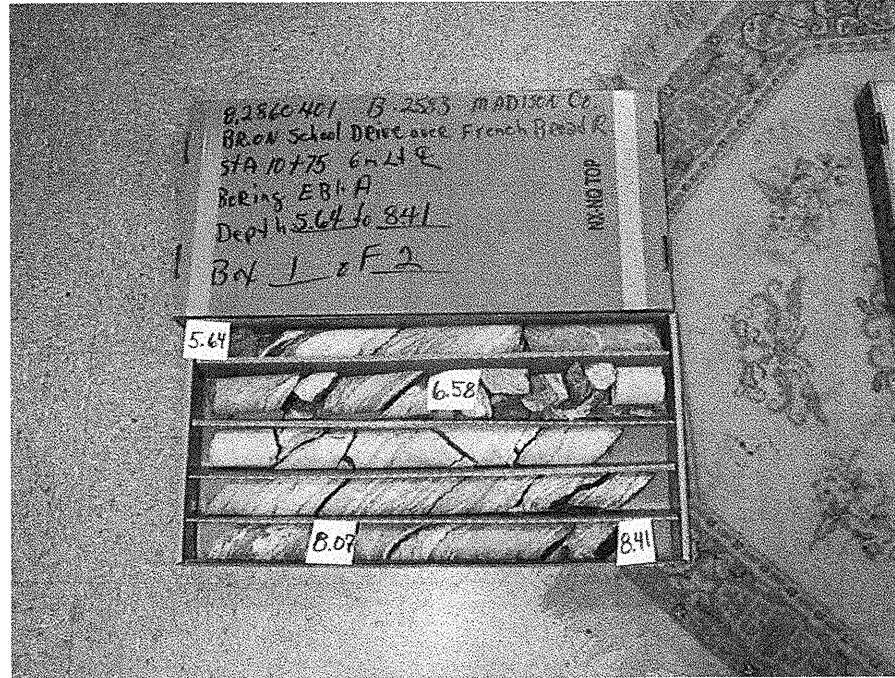 8.2860401 B-2593 MADISON Co
BR. ON School DRive over French Broad R.
StA 10+75 6m Lt ℄
BoRing EB1-A
Depth 5.64 to 8.41
Box 1 oF 2
NX-NQ TOP
5.64
6.58
8.07
8.41